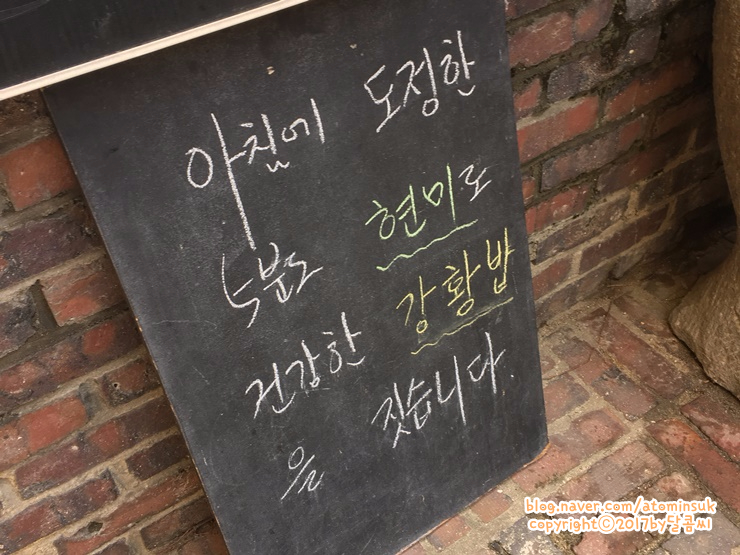 아침에 도정한
5분도 현미로
건강한 강황밥
을 짓습니다.
blog.naver.com/atominsuk
copyrightⓒ2017by달콤씨